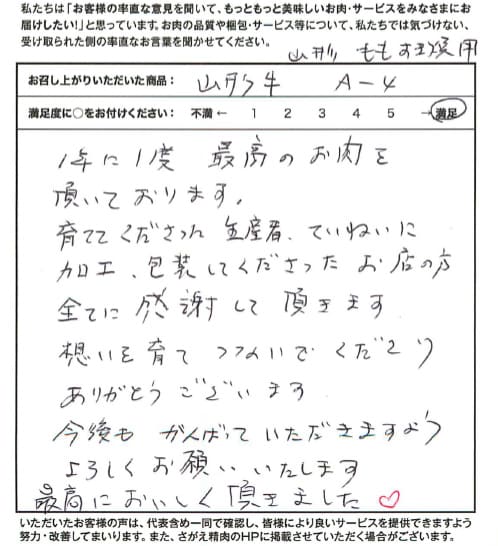 私たちは「お客様の率直な意見を聞いて、もっともっと美味しいお肉・サービスをみなさまにお
届けしたい!」と思っています。お肉の品質や梱包・サービス等について、私たちでは気づけない、
受け取られた側の率直なお言葉を聞かせてください。
山形 ももすき焼用
お召し上がりいただいた商品: 山形牛 A-4
満足度に○をお付けください: 不満 ← 1 2 3 4 5 →満足
1年に1度 最高のお肉を
頂いております。
育ててくださった 生産者、ていねいに
加工、包装してくださった お店の方
全てに 感謝して 頂きます
想いを育て つないでくださり
ありがとう ございます
今後も がんばって いただきますよう
よろしく お願い いたします
最高に おいしく 頂きました♡
いただいたお客様の声は、代表含め一同で確認し、皆様により良いサービスを提供できますよう
努力・改善してまいります。また、さがえ精肉のHPに掲載させていただく場合がございます。